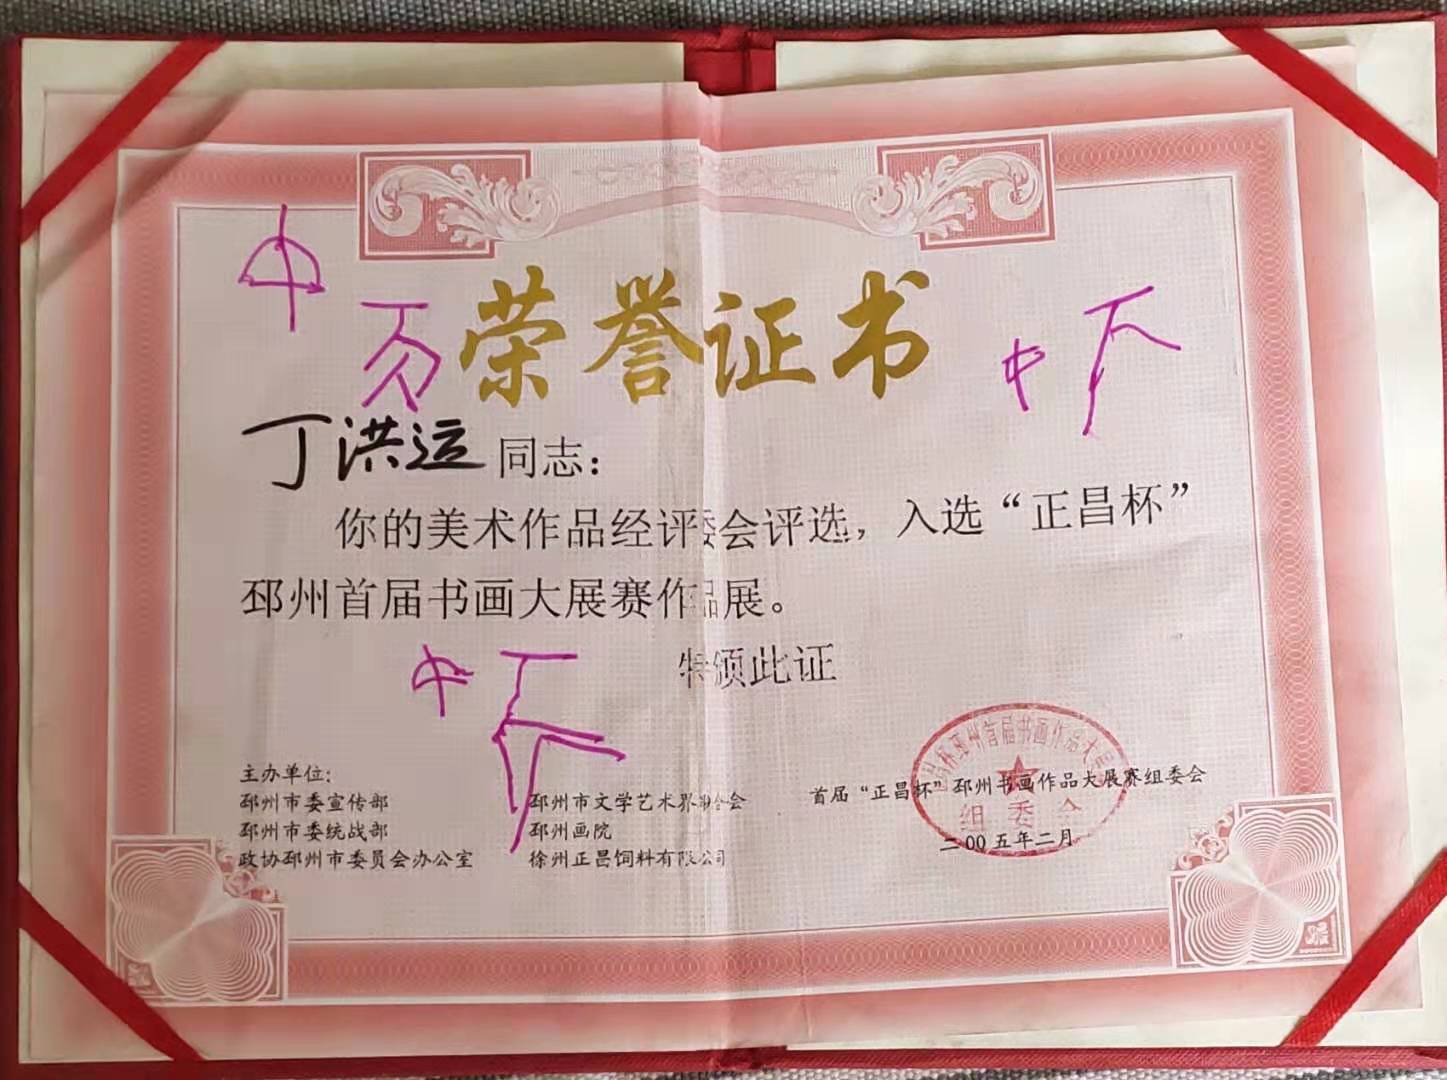 荣誉证书
丁洪运同志：
你的美术作品经评委会评选，入选“正昌杯”
邳州首届书画大展赛作品展。
特颁此证
主办单位：
邳州市委宣传部
邳州市委统战部
政协邳州市委员会办公室
邳州市文学艺术界联合会
邳州画院
徐州正昌饲料有限公司
首届“正昌杯”邳州书画作品大展赛组委会
组委会
二00五年二月